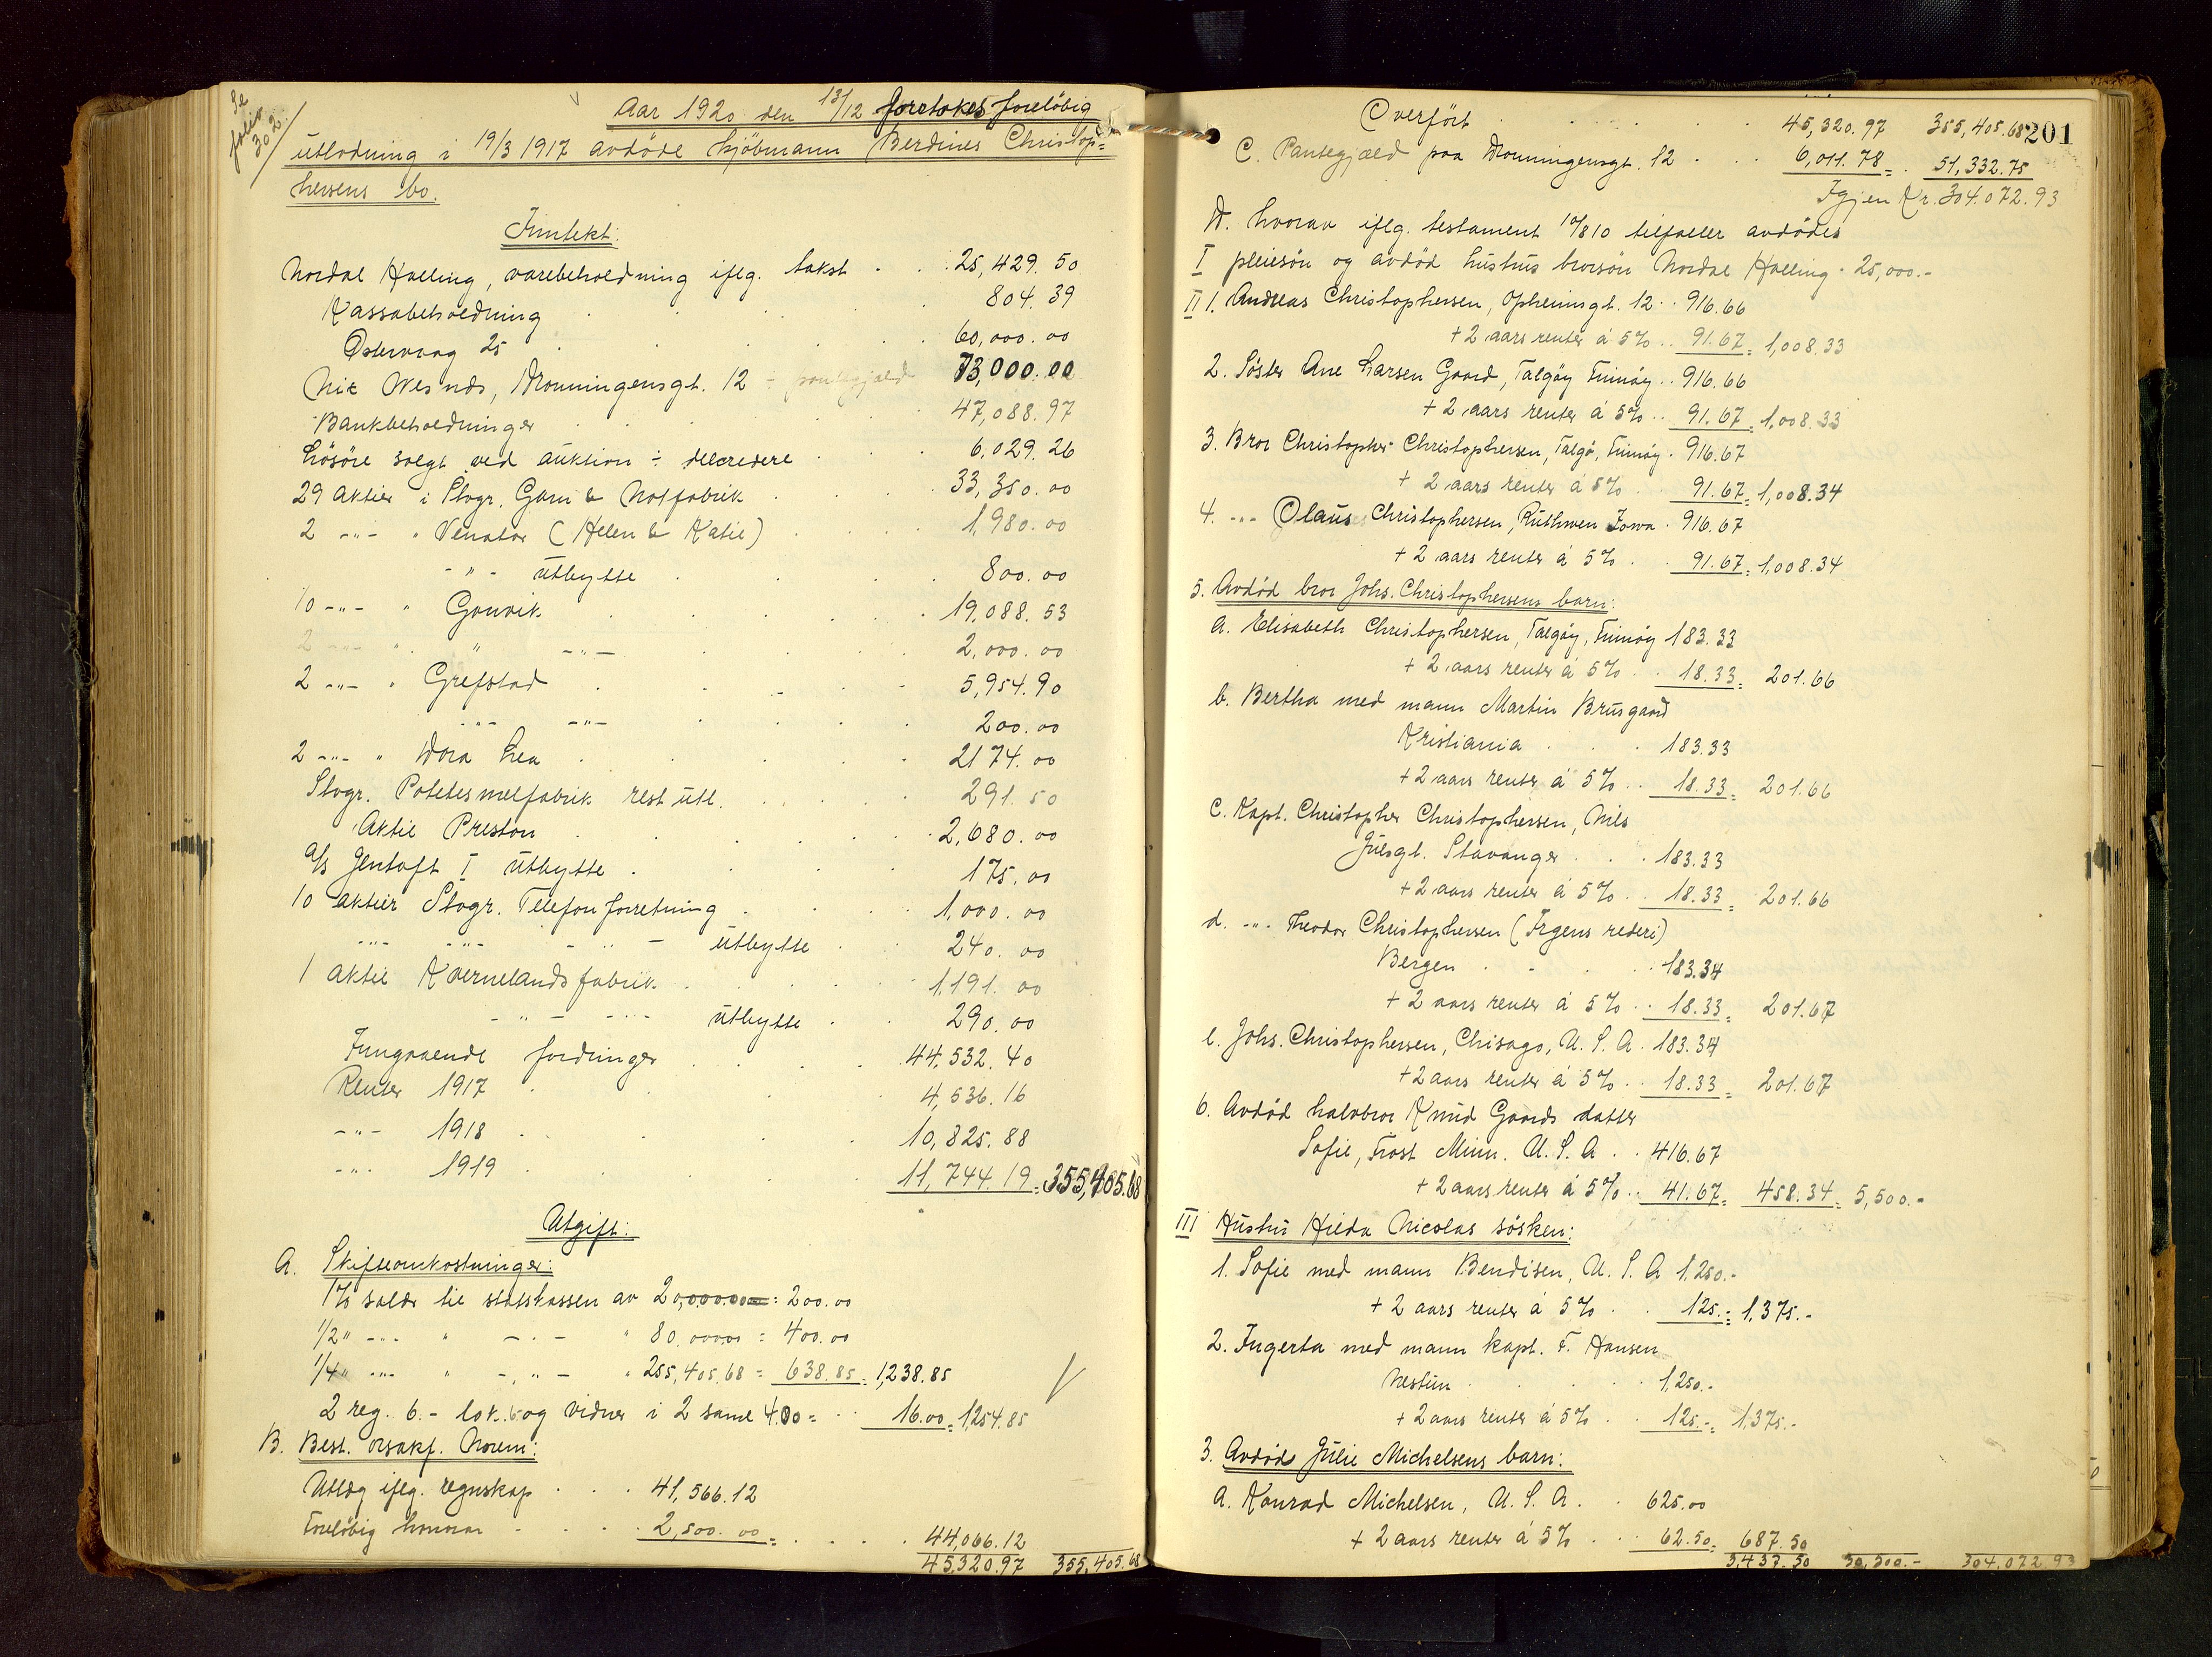 Se
folio
302.
Aar 1920 den 13/12 foretokes foreløbig
utlodning i 19/3 1917 avdøde kjøbmann Berdines Christop=
hersens bo.
Inntekt:
Nordal Halling, varebeholdning iflg. takst . . . 25,429.50
Kassabeholdning . . . 804.39
Østervaag 25 . . . 60,000.00
Dronningensgt. 12 ÷ pantegjæld 73,000.00
Bankbeholdninger . . . 47,088.97
Løsøre solgt ved auktion ÷ delcredere . . . 6,029.26
29 aktier i Stvgr. Garn & Notfabrik . . . 33,350.00
2 -"- " Venator (Helen & Katie) . . . 1,980.00
-"- utbytte . . . 800.00
10 -"- " Gonvik . . . 19,088.53
2 -"- " " -"- . . . 2,000.00
2 -"- " Grefstad . . . 5,954.90
-"- -"- . . . 200.00
2 -"- " Dora Lea . . . 2174.00
Stvgr. Potetesmelfabrik rest utl. . . . 291.50
Aktie Preston . . . 2,680.00
A/S Gentoft I utbytte . . . 175.00
10 aktier Stvgr. Telefonforretning . . . 1,000.00
-"- -"- - " - utbytte . . . 240.00
1 aktie Kvernelands fabrik . . . 1,191.00
- " - -"- utbytte . . . 290.00
Inngaaende fordringer . . . 44,532.40
Renter 1917 . . . 4,536.16
-"- 1918 . . . 10,825.88
-"- 1919 . . . 11,744.19 = 355,405.68
Utgift:
A. Skifteomkostninger:
1% salær til statskassen av 20,000.00 = 200.00
1/2 " -"- " -"- " 80.00000 = 400.00
1/4 " -"- " -"- " 255,405.68 = 638.85 = 1,238.85
2 reg. 6.- lok. 6 og vidner i 2 saml 4.00 = . . 16.00 = 1254.85
B. Best. orsakf. Norem:
Utlæg iflg. regnskap . . . 41,566.12
Foreløbig honorar . . . 2,500.00 = . . . 44,066.12
45320.97 355,405.68
Overført . . . 45,320.97 355,405.68
201
C. Pantegjæld paa Dronningensgt. 12 . . . 6,011.78 = . 51,332.75
Igjen Kr. 304.072.93
D. hvorav iflg. testament tilfaller avdødes
I pleiesøn og avdød hustrus brorsøn Nordal Halling . 25,000.-
II 1. Andreas Christophersen, Opheimsgt. 12 . . 916.66
+ 2 aars renter á 5% . . 91.67 = 1,008.33
2. Søster Ane Larsen Gaard, Talgøy Finnøy . . 916.66
+ 2 aars renter á 5% . . 91.67 = 1,008.33
3. Bror Christopher Christophersen, Talgø, Finnøy . 916.67
+ 2 aars renter á 5% . 91.67 = 1,008.34
4. -"- Olaus Christophersen, Ruthwen Iowa . 916.67
+ 2 aars renter á 5% . . 91.67 = 1,008.34
5. Avdød bror Johs. Christophersens barn:
a. Elisabeth Christophersen, Talgøy, Finnøy 183.33
+ 2 aars renter á 5% . . 18.33 = 201.66
b. Bertha med mann Martin Brusgaard
Kristiania . . . 183.33
+ 2 aars renter á 5% . . 18.33 = 201.66
c. Kapt. Christopher Christophersen, Nils
Juelsgt. Stavanger . . . 183.33
+ 2 aars renter á 5% . . 18.33 = 201.66
d. -"- Theodor Christophersen (Irgens rederi)
Bergen . . . 183.34
+ 2 aars renter á 5% . . 18.33 = 201.67
e. Johs. Christophersen, Chisago, U. S. A. 183.34
+ 2 aars renter á 5% . . 18.33 = 201.67
6. Avdød halvbror Knud Gaards datter
Sofie, Frost Minn. U. S. A . . 416.67
+ 2 aars renter á 5% . . 41.67 = 458.34 = 5,500.-
III Hustru Hilda Nicolas søsken:
1. Sofie med mann Bendisen, U. S. A 1,250.-
+ 2 aars renter á 5% . . 125.- = 1,375.-
2. Ingerta med mann kapt. F. Hansen
Nestun . . . 1,250.-
+ 2 aars renter á 5% . . 125.- = 1,375.-
3. Avdøde Julie Michelsens barn:
a. Konrad Michelsen, U. S. A. . 625.00
+ 2 aars renter á 5% . . 62.50 = 687.50
3,437.50 30,500.- 304.072.93